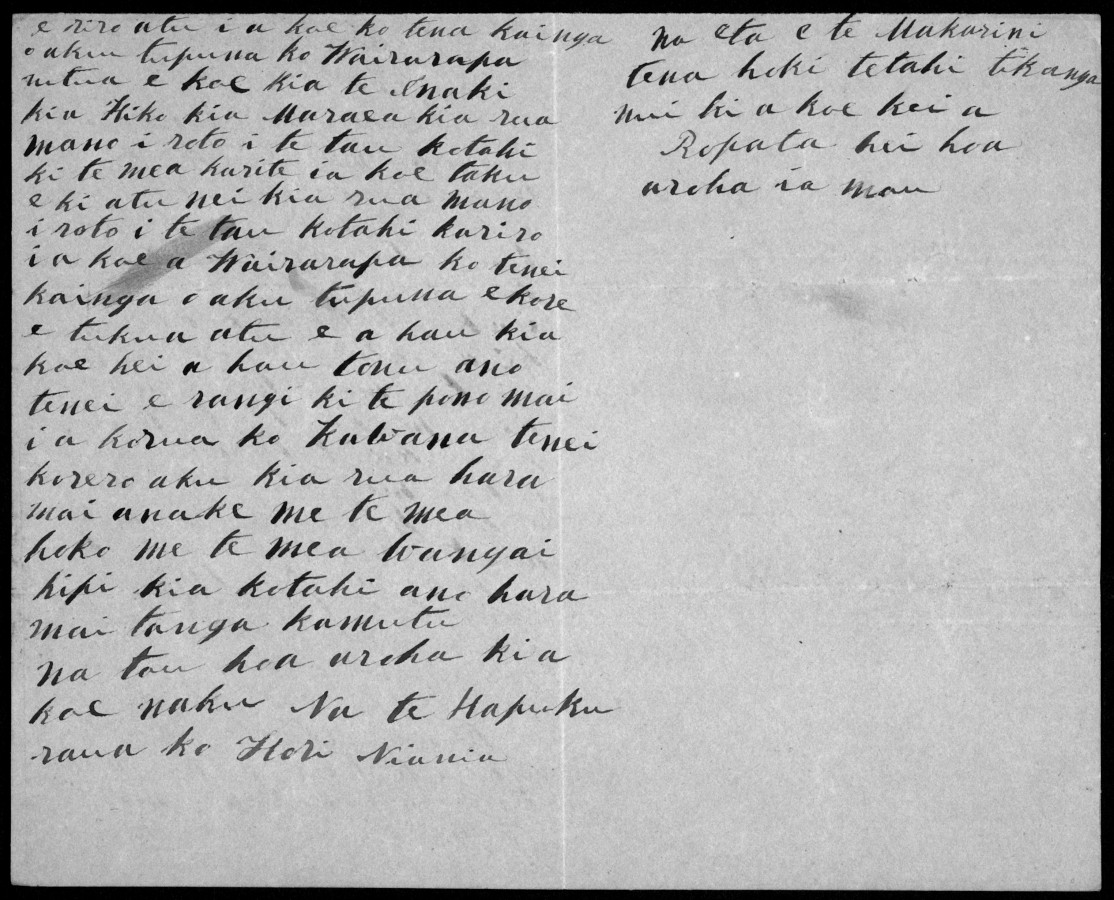 e riro atu i a koe ko tena kainga
o aku tupuna ko Wairarapa
mitua e koe kia te Inaki
kia Hiko kia Maraea kia rua
mano i roto i te tau kotahi
ki te mea karite ia koe taku
e ki atu nei kia rua mano
i roto i te tau kotahi kariro
i a koe a Wairarapa ko tenei
kainga o aku tupuna ekore
e tukua atu e a hau kia
koe hei a hau tonu ano
tenei e rangi ki te pono mai
i a korua ko Kawana tenei
korero aku kia rua hara
mai anake me te mea
hoko me te mea wangai
hipi kia kotahi ano hara
mai tanga kamutu
na tou hoa aroha kia
koe naku Na te Hapuku
raua ko Hori Niania
na eta e te Makarini
tena hoki tetahi tikanga
mii ki a koe kei a
Ropata hei hoa
aroha ia mau